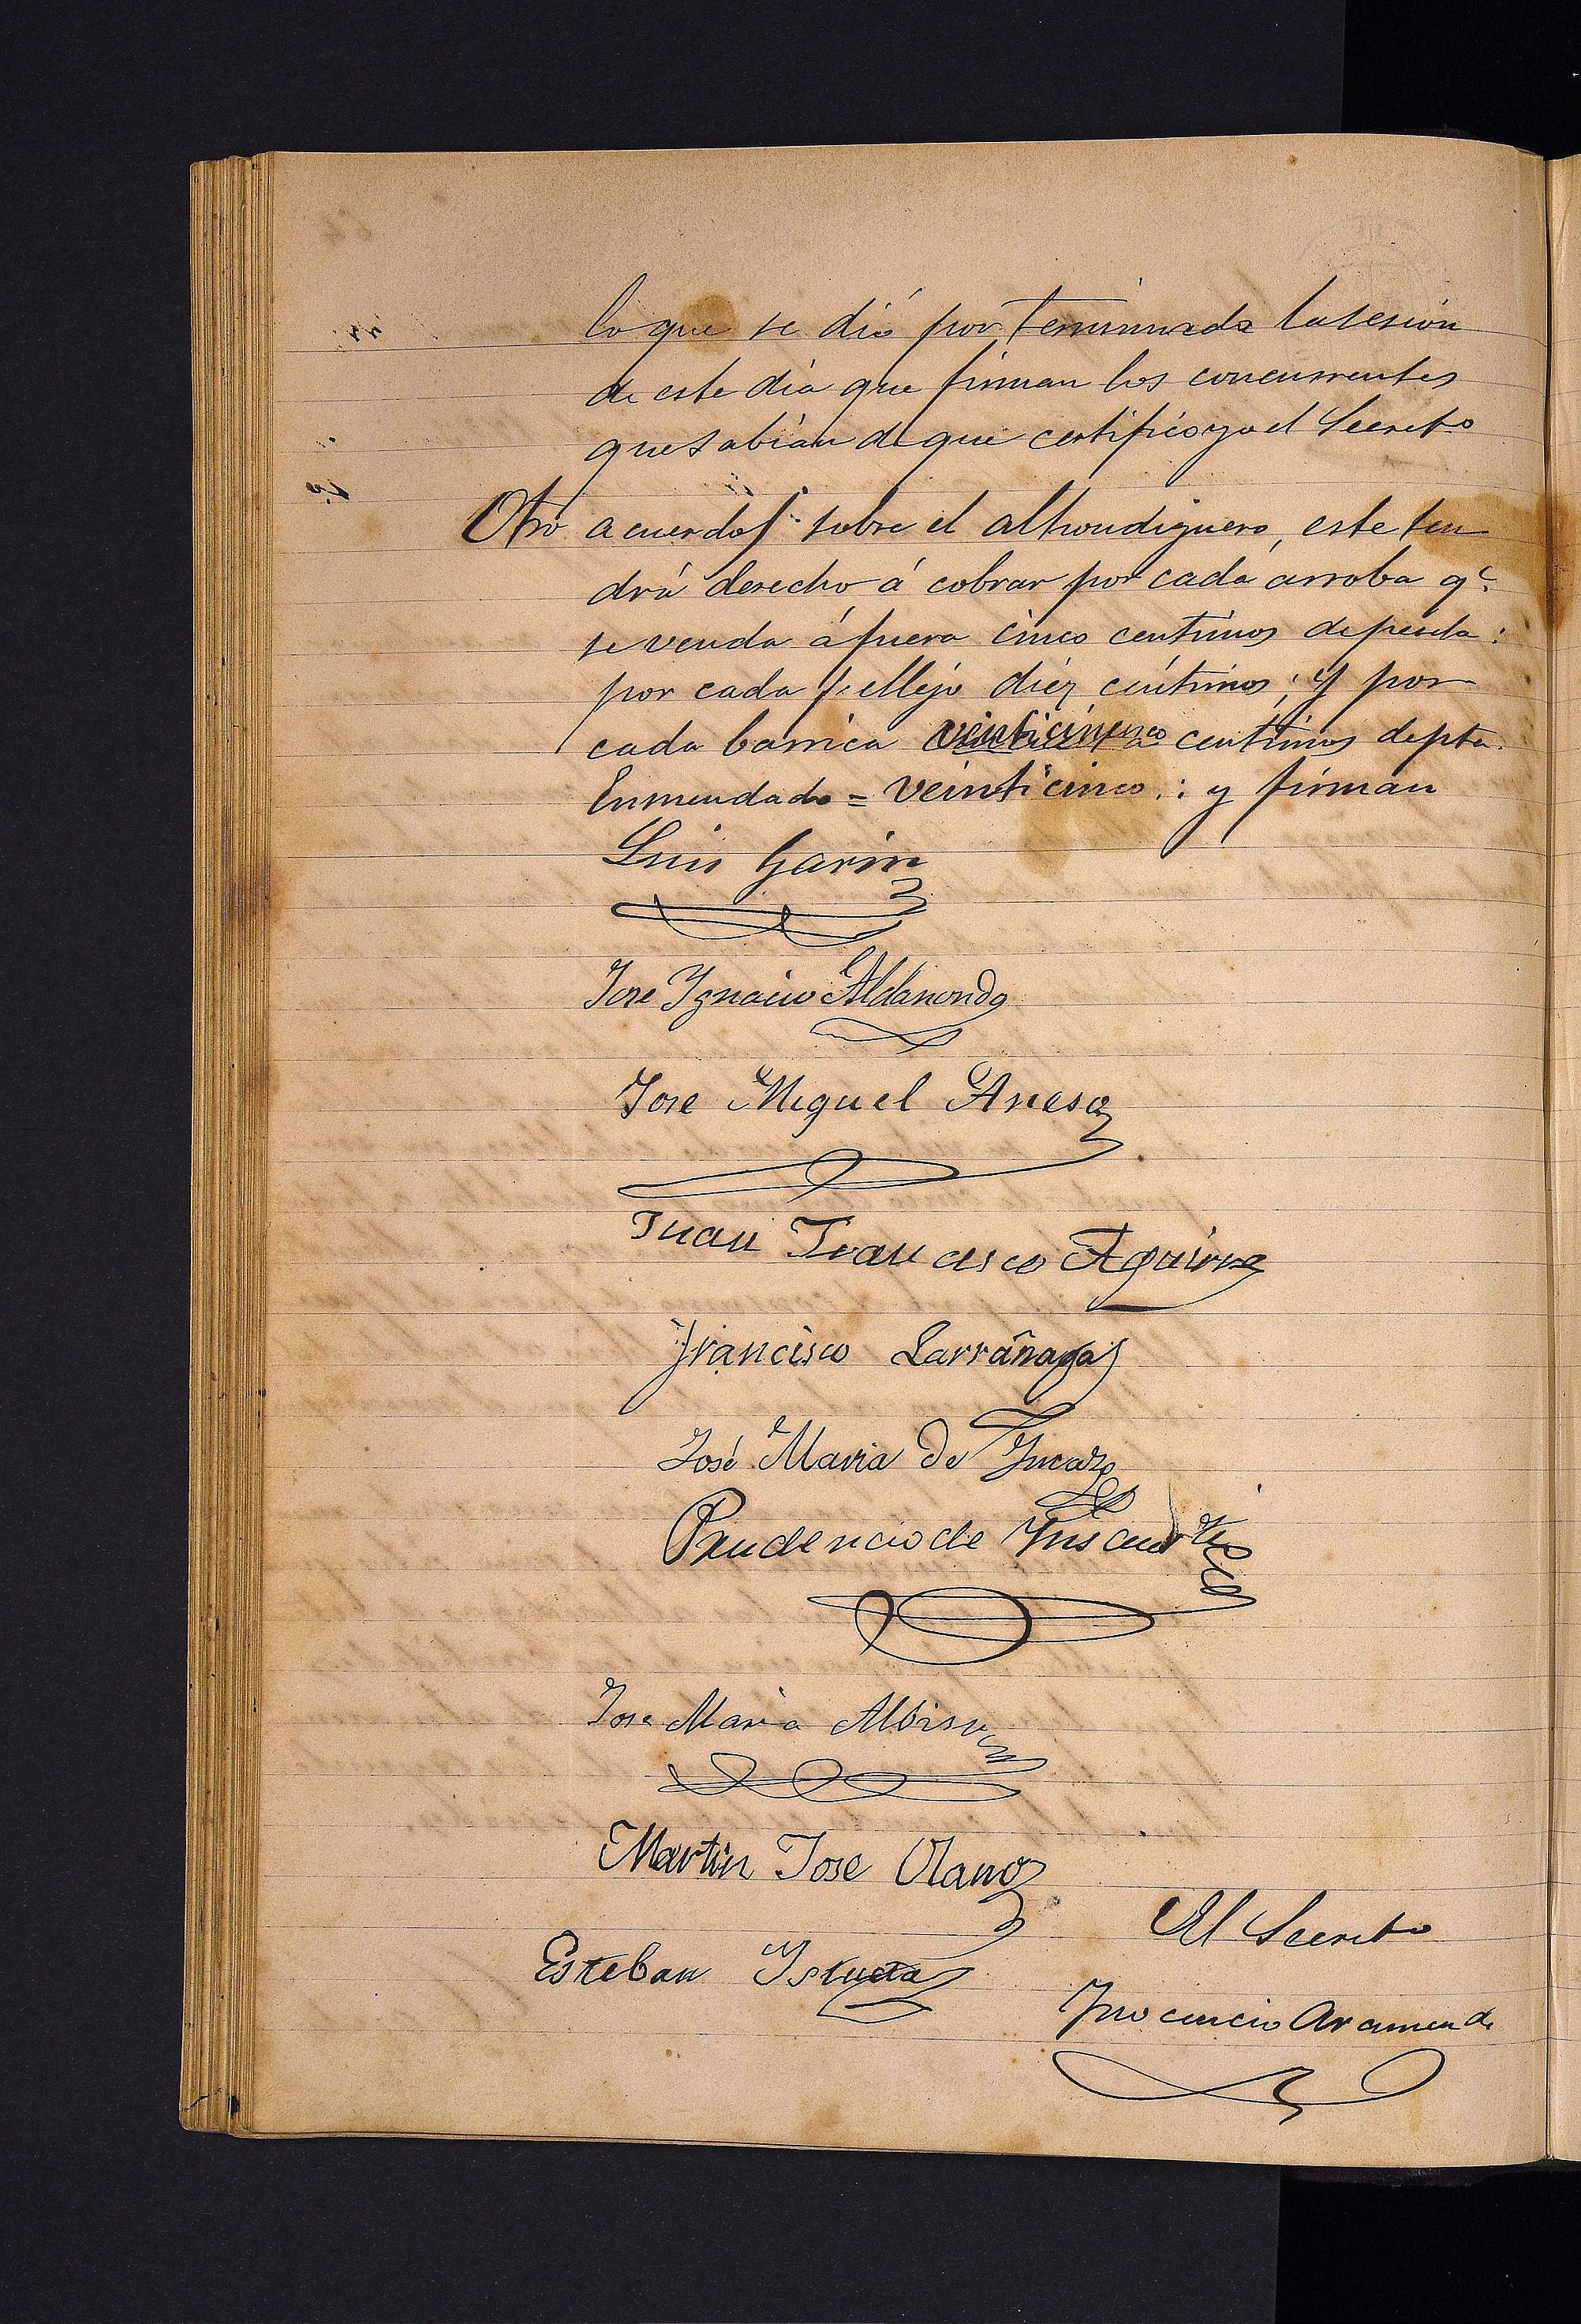 lo que se dió por terminada la sesión
de este día que firman los concurrentes
que sabían de que certifico yo el Secreto
Otro acuerdo/ sobre el alhondiguero, este ten
drá derecho á cobrar por cada arroba qe
se venda áfuera cinco centimos de peseta:
por cada pellejo diez céntimos; y por
cada barrica veinticinco centimos de pta.
Enmendado = veinticinco: y firman
Luis Garin
Jose Ygnacio Aldanondo
Jose Miguel Aresa
Juan Francisco Aguirre
Francisco Larrañaga
José Maria de
Prudencio de
Jose Maria Albisu
Martin Jose Olano
El Secreto
Esteban
Ynocencio Aramendi